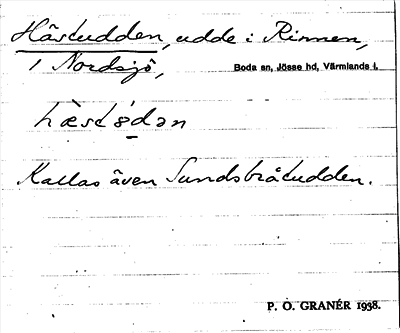 Hästudden, udde i Rinnen,
i Nordsjö, Boda sn, Jösse hd, Värmlands l.
hæst ödən
Kallas även Sundsbråtudden.
P. O. GRANÉR 1938.